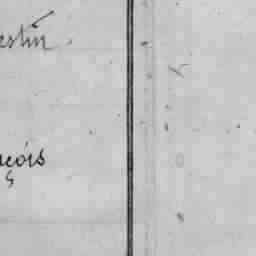 estin
nçois